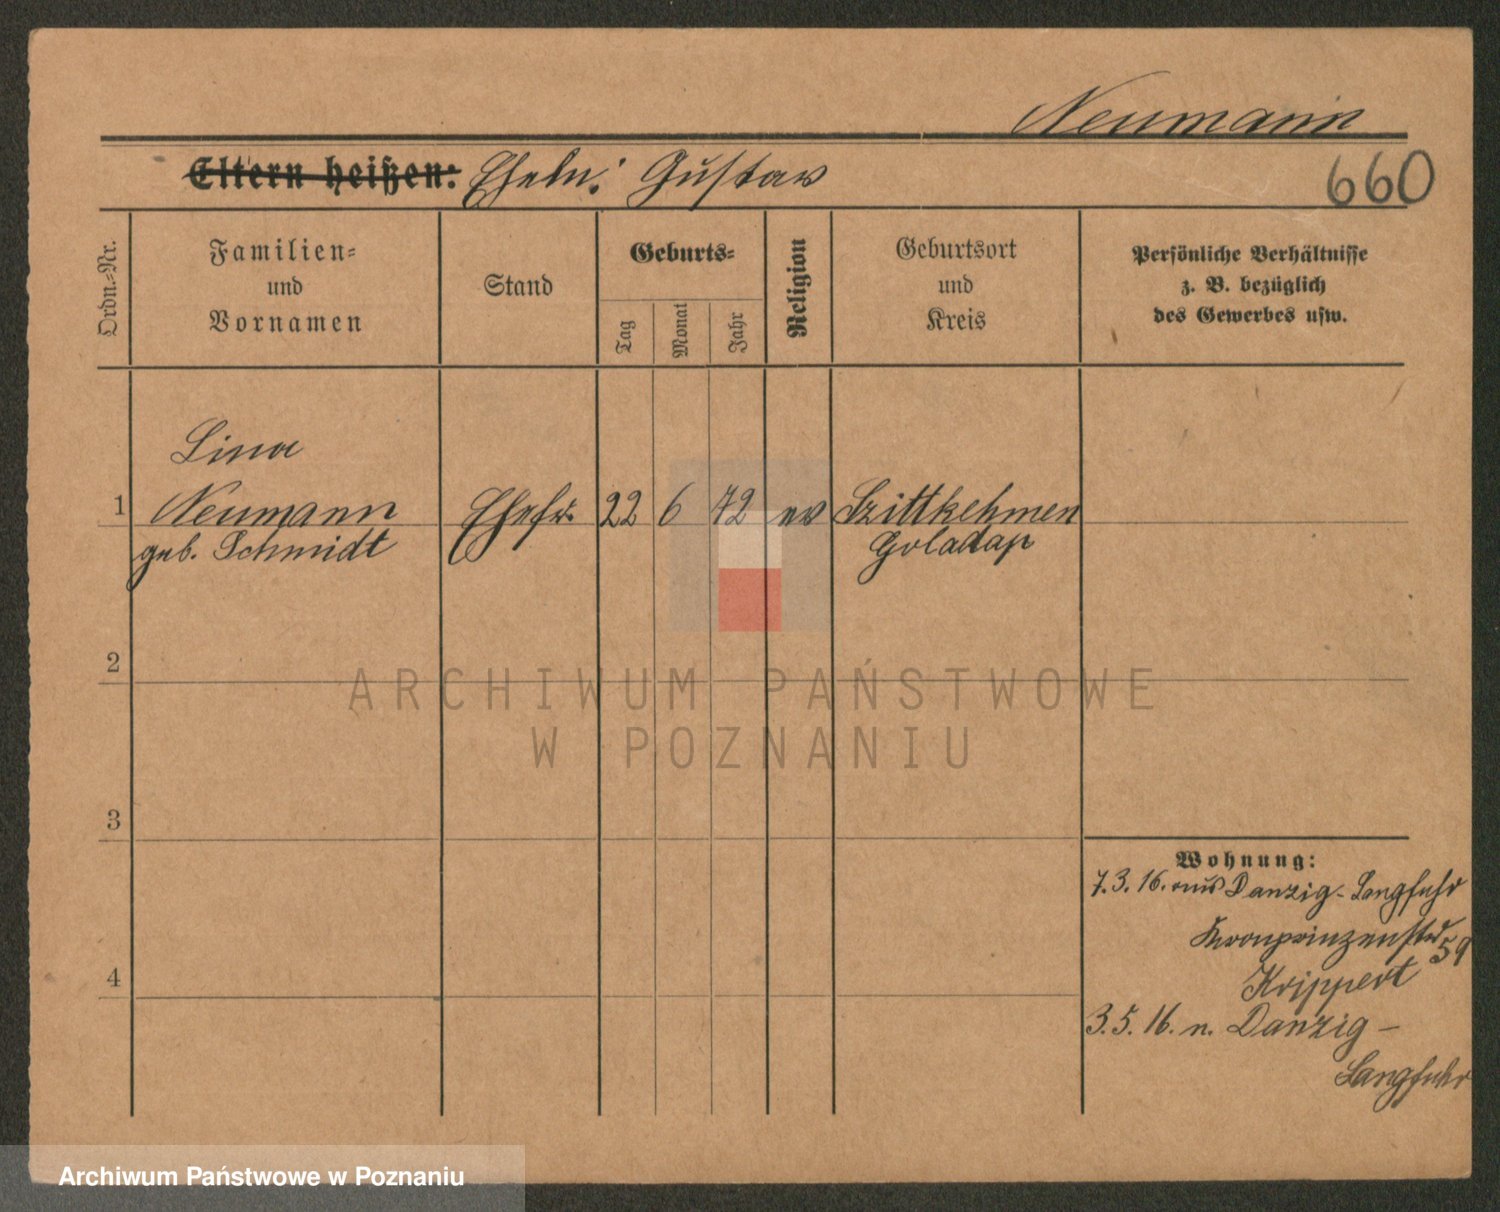 Neumann
Eltern heißen: Eheln: Gustav
660
Ordn.-Nr.
Familien-
und
Vornamen
Stand
Geburts-
Tag
Monat
Jahr
Religion
Geburtsort
und
Kreis
Persönliche Verhältnisse
z. B. bezüglich
des Gewerbes usw.
Lina
1 Neumann Ehefr. 22 6 72 ev Szittkehmen
geb. Schmidt Goladap
2
ARCHIWUM PAŃSTWOWE
W POZNANIU
3
Wohnung:
7.3.16. aus Danzig-Langfuhr
Kronprinzenstr 59
4 Krippert
3.5.16. n. Danzig-
Langfuhr
Archiwum Państwowe w Poznaniu